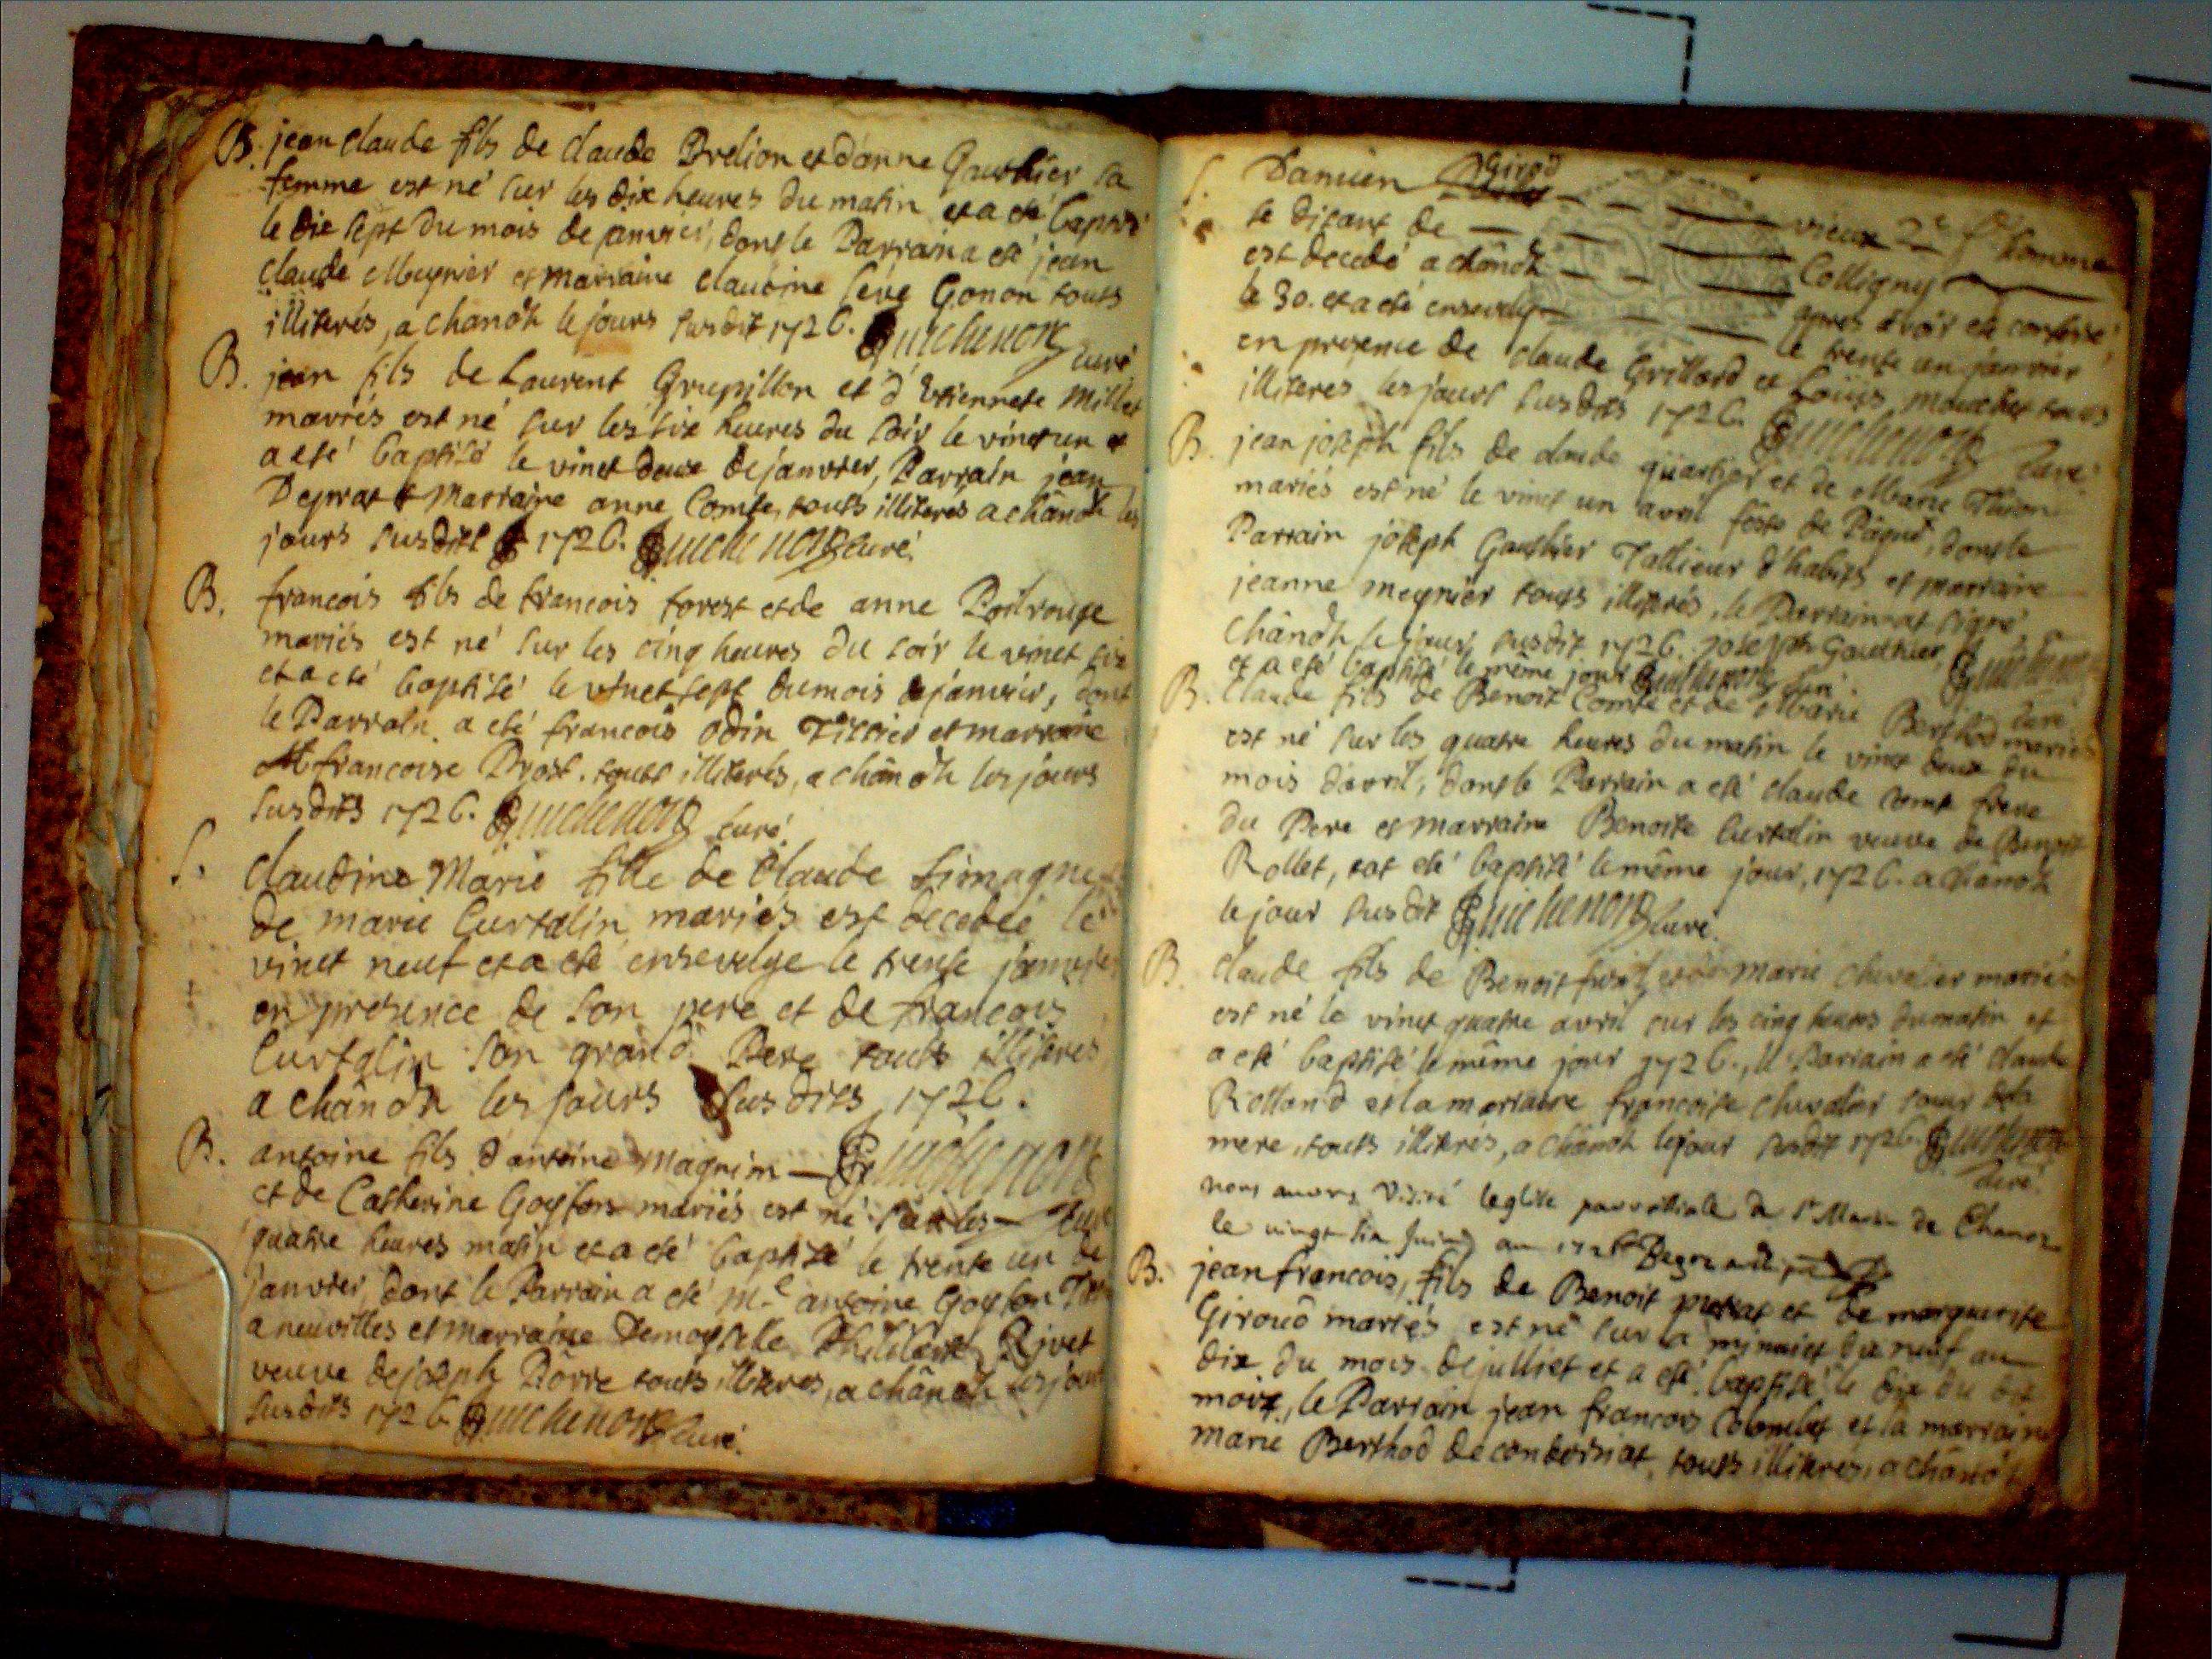 B. jean claude fils de claude Brelion et d'anne Gauthier sa
femme est né sur les dix heures du matin et a eté baptisé
le dix sept du mois de janvier, dont le Parrain a eté jean
claude Meynier et marraine claudine feve Gonon touts
illiterés, a chanoz le jours susdit 1726. Guichenon curé
B. jean fils de Laurent Grupillon et d'Etiennete Millet
mariés est né sur les six heures du soir le vinct un et
a eté baptisé le vinct deux de janvier, Parrain jean
Deprat et Marraine anne Comte, touts illiteres a chanoz les
jours susdits 1726. Guichenon curé.
B. francois fils de francois forest et de anne Poilrouge
mariés est né sur les cinq heures du soir le vinct six
et a eté baptisé le vinct sept du mois de janvier, dont
le Parrain a eté francois Odin Tissier et marraine
francoise Pyost. touts illiterés, a chanoz les jours
susdits 1726. Guichenon curé.
S. claudine Marie fille de Claude Limagne
de marie Curtalin mariés est decedée le
vinct neuf et a eté ensevelye le trente janvier
en presence de son pere et de francois
Curtalin son grand Pere touts illiteres
a chanoz les jours susdits 1726.
B. antoine fils d'antoine Magnin — Guichenon
et de Catherine Goyfon mariés est né sur les — curé
quatre heures matin et a eté baptisé le trente un de
janvier, dont le Parrain a eté m.e antoine Goyfon
a neuvilles et marraine Demoyselle Philiberte Rivet
veuve de joseph Porre touts illiteres, a chanoz les jours
susdits 1726. Guichenon curé.
S. Damien Girod — — — — vieux homme
se disant de — — — — Colligny
est decedé a chanoz — — — apres avoir eté confessé,
le 30. et a eté ensevely — — — le trente un janvier
en presence de claude Grillard et Louys mouchet touts
illiteres les jours susdits 1726. Guichenon curé.
B. jean joseph fils de claude quartier et de Marie Thion
mariés est né le vinct un avril feste de Pâques, dont le
Parrain joseph Gauthier Tallieur d'habits et marraine
jeanne meynier touts illiterés, le Parrain at signé
chanoz le jour susdit 1726. Joseph Gauthier, Guichenon
et a eté baptisé le même jour Guichenon curé. curé
B. Claude fils de Benoit Comte et de Marie Berthod mariés
est né sur les quatre heures du matin le vinct deux du
mois d'avril, dont le Parrain a eté claude Comte frere
du Pere et marraine Benoite Curtalin veuve de Benoit
Rollet, et at eté baptisé le même jour, 1726. a chanoz
le jour susdit Guichenon curé.
B. claude fils de Benoit et de marie chevalier mariés
est né le vinct quatre avril sur les cinq heures du matin et
a eté baptisé le même jour 1726., le Parrain a eté claude
Rolland et la marraine francoise chevalier soeur de la
mere, touts illiterés, a chanoz le jour susdit 1726. Guichenon
curé.
nous avons visité leglise parroissiale de St Martin de Chanoz
le vingt six Juin an 1726
B. jean francois, fils de Benoit et de marguerite
Giroud mariés est né sur la minuict du neuf au
dix du mois de julliet et a eté baptisé le dix du dit
mois, le Parrain jean francois Colombet et la marraine
marie Berthod de confransiat, touts illiteres, a chanoz